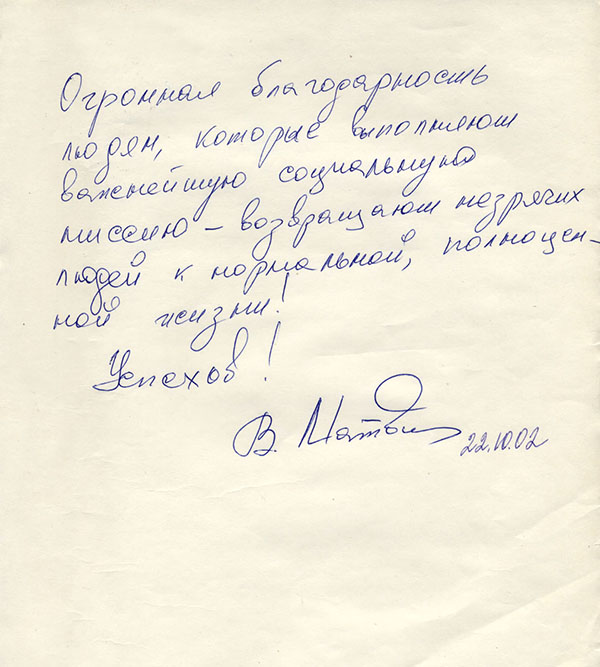 Огромная благодарность
людям, которые выполняют
важнейшую социальную
миссию – возвращают незрячих
людей к нормальной, полноцен–
ной жизни!
Успехов!
В.
22.10.02